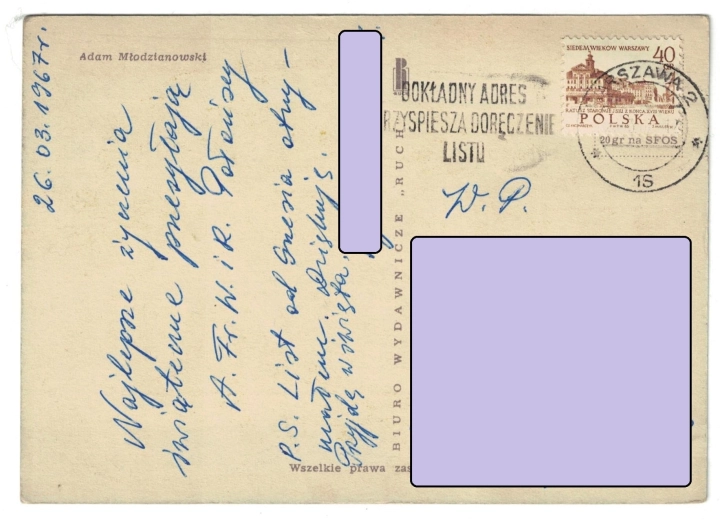 Adam Młodzianowski
26. 03. 1967r.
Najlepsze życzenia
świąteczne przesyłają
A. Fr. W. i R.
P.S. List od
Dziękuję.
BIURO WYDAWNICZE „RUCH
Wszelkie prawa zas
DOKŁADNY ADRES
RZYSPIESZA DORĘCZENIE
LISTU
SIEDEM WIEKÓW WARSZAWY
40
POLSKA
20 gr na SFOS
RSZAWA 2
1S
W. P.